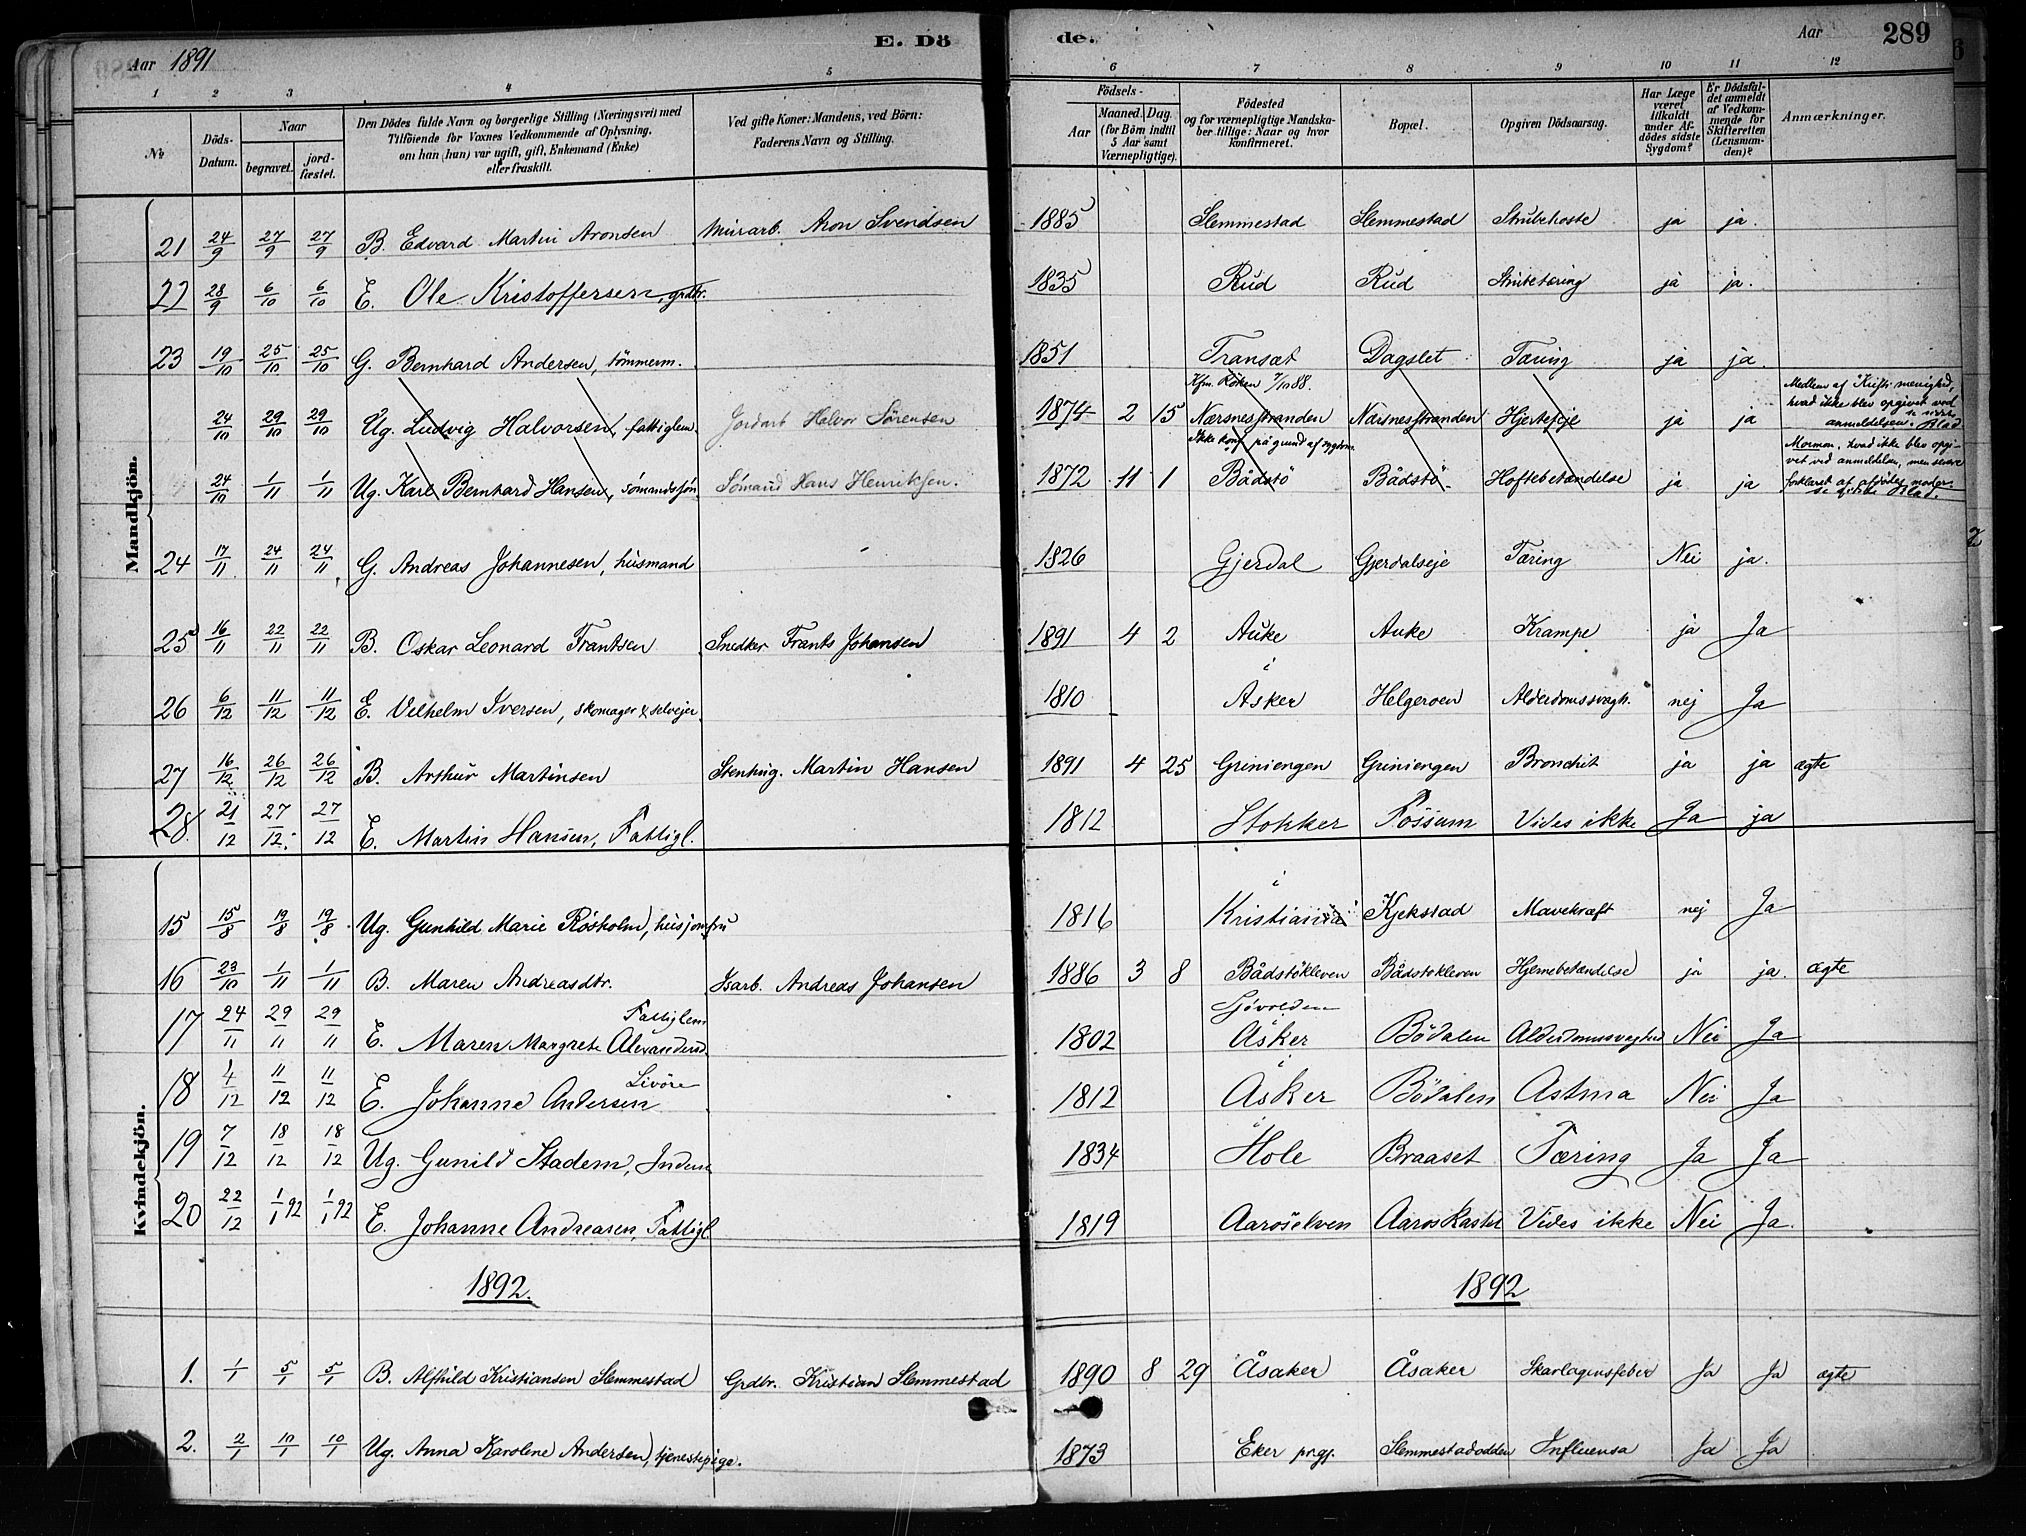 Aar 1891 E. Dö de. Aar 289
1 2 3 4 5 6 7 8 9 10 11 12
No
Döds-Datum.
Naar
begravet.
jord-fæstet.
Den Dödes fulde Navn og borgerlige Stilling (Næringsvei) med
Tilföiende for Voxnes Vedkommende af Oplysning,
om han (hun) var ugift, gift, Enkemand (Enke)
eller fraskilt.
Ved gifte Koner: Mandens, ved Börn:
Faderens Navn og Stilling.
Födsels-
Aar
Maaned. Dag.
(for Börn indtil
5 Aar samt
Værnepligtige).
Födested
og for værnepligtige Mandska-
ber tillige: Naar og hvor
konfirmeret.
Bopæl.
Opgiven Dödsaarsag.
Har Læge
været
tilkaldt
under Af-
dödes sidste
Sygdom?
Er Dödsfal-
det anmeldt
af Vedkom-
mende for
Skifteretten
(Lensman-
den)?
Anmærkninger.
Mandkjön.
21 24/9 27/9 27/9 B. Edvard Martin Aronsen Murarb. Aron Svendsen 1885 Slemmestad Slemmestad Strubehoste ja ja.
22 28/9 6/10 6/10 E. Ole Kristoffersen, grdbr. 1835 Rud Rud Strubetæring ja ja.
23 19/10 25/10 25/10 G. Bernhard Andersen, tömmerm. 1851 Transæt Dagslet Tæring ja ja
Kfm. Röken 7/10 88.
24/10 29/10 29/10 Ug. Ludvig Halvorsen, fattiglem Jordarb Halvor Sörensen 1874 2 15 Nærsnesstranden Nærsnesstranden Hjertefeje ja ja
Medlem af Kristi menighed,
hvad ikke blev opgivet ved
anmeldelsen.
Ikke konf på grund af sygdom.
24/10 1/11 1/11 Ug. Karl Bernhard Hansen, sömandssön Sömand Hans Henriksen. 1872 11 1 Bådstö Bådstö Hoftebetændelse ja ja
Mormon, hvad ikke blev opgi-
vet ved anmeldelsen, men senere
forklaret af afdödes moder.
24 17/11 24/11 24/11 G. Andreas Johannesen, husmand 1826 Gjerdal Gjerdalseje Tæring Nei ja.
25 16/11 22/11 22/11 B. Oskar Leonard Frantsen Snedker Frants Johansen 1891 4 2 Auke Auke Krampe ja Ja
26 6/12 11/12 11/12 E. Vilhelm Iversen, skomager & selvejer 1810 i Asker Helgeroen Alderdomssvagh. nej Ja
27 16/12 26/12 26/12 B. Arthur Martinsen Stenhug. Martin Hansen 1891 4 25 Griniengen Griniengen Bronchit ja ja ægte
28 21/12 27/12 27/12 E. Martin Hansen, Fattigl. 1812 Stokker Fossum Vides ikke Ja ja
Kvindekjön.
15 15/8 19/8 19/8 Ug. Gunhild Marie Rösholm, husjomfru 1816 i Kristiania Kjekstad Mavekræft nej Ja
16 23/10 1/11 1/11 B. Maren Andreasdtr. Isarb. Andreas Johansen 1886 3 8 Bådstökleven Bådstökleven Hjernebetændelse ja ja. ægte
17 24/11 29/11 29/11 E. Maren Margrete Alexandersd. Fattiglem 1802 Sjövolden i Asker Bödalen Alderdomssvaghed Nei Ja
18 4/12 11/12 11/12 E. Johanne Andersen Livöre 1812 i Asker Bödalen Astma Nei Ja
19 7/12 18/12 18/12 Ug. Gunild Stadem, Inderst 1834 Hole Braaset Tæring Ja Ja
20 22/12 1/1 92 1/1 92 E. Johanne Andreasen, Fattigl. 1819 Aaroselven Aaroskasti Vides ikke Nei Ja.
1892. 1892
1. 1/1 5/1 5/1 B. Alfhild Kristiansen Slemmestad Grdbr. Kristian Slemmestad 1890 8 29 Åsaker Åsaker Skarlagensfeber Ja Ja ægte
2. 2/1 10/1 10/1 Ug. Anna Karolene Andersen, tjenestepige. 1873 Eker prgj. Slemmestadodden Influensa Ja Ja